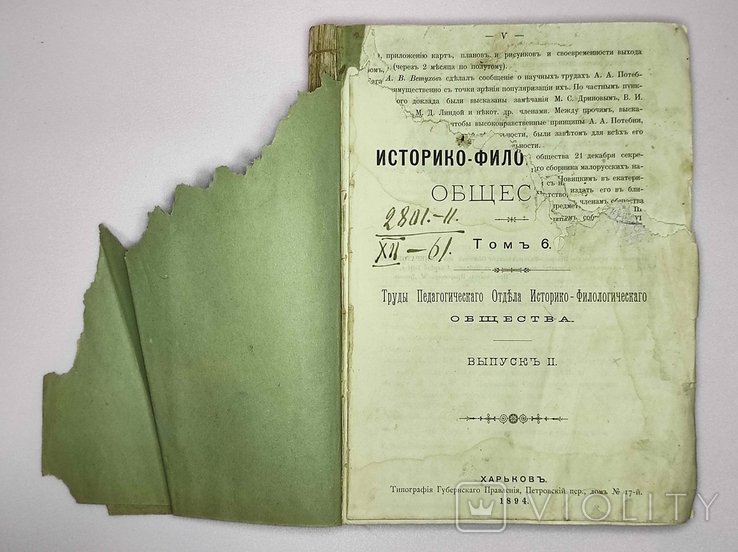 — V —
приложенію картъ, плановъ и рисунковъ и своевременности выхода
(черезъ 2 мѣсяца по полутому).
А. В. Ветуховъ сдѣлалъ сообщеніе о научныхъ трудахъ А. А. Потеб-
имущественно съ точки зрѣнія популяризаціи ихъ. По частнымъ пунк-
доклада были высказаны замѣчанія М. С. Дриновымъ, В. И.
М. Д. Линдой и нѣкот. др. членами. Между прочимъ, выска-
чтобы высоконравственные принципы А. А. Потебни,
были завѣтомъ для всѣхъ его
общества 21 декабря секре-
сборника малорусскихъ на-
Новицкимъ въ екатери-
издать его въ бли-
членамъ общества
ИСТОРИКО-ФИЛО
ОБЩЕС
2801.-II.
XII-61.
Томъ 6.
Труды Педагогическаго Отдѣла Историко-Филологическаго
ОБЩЕСТВА.
ВЫПУСКЪ II.
ХАРЬКОВЪ.
Типографія Губернскаго Правленія, Петровскій пер., домъ № 17-й.
1894.
VIOLITY